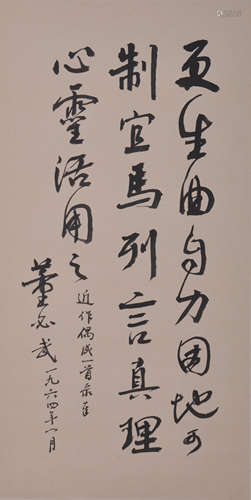 更生曲自力因地可
制宜馬列言真理
心靈活用之
近作偶成一首录自
董必武一九六四年一月